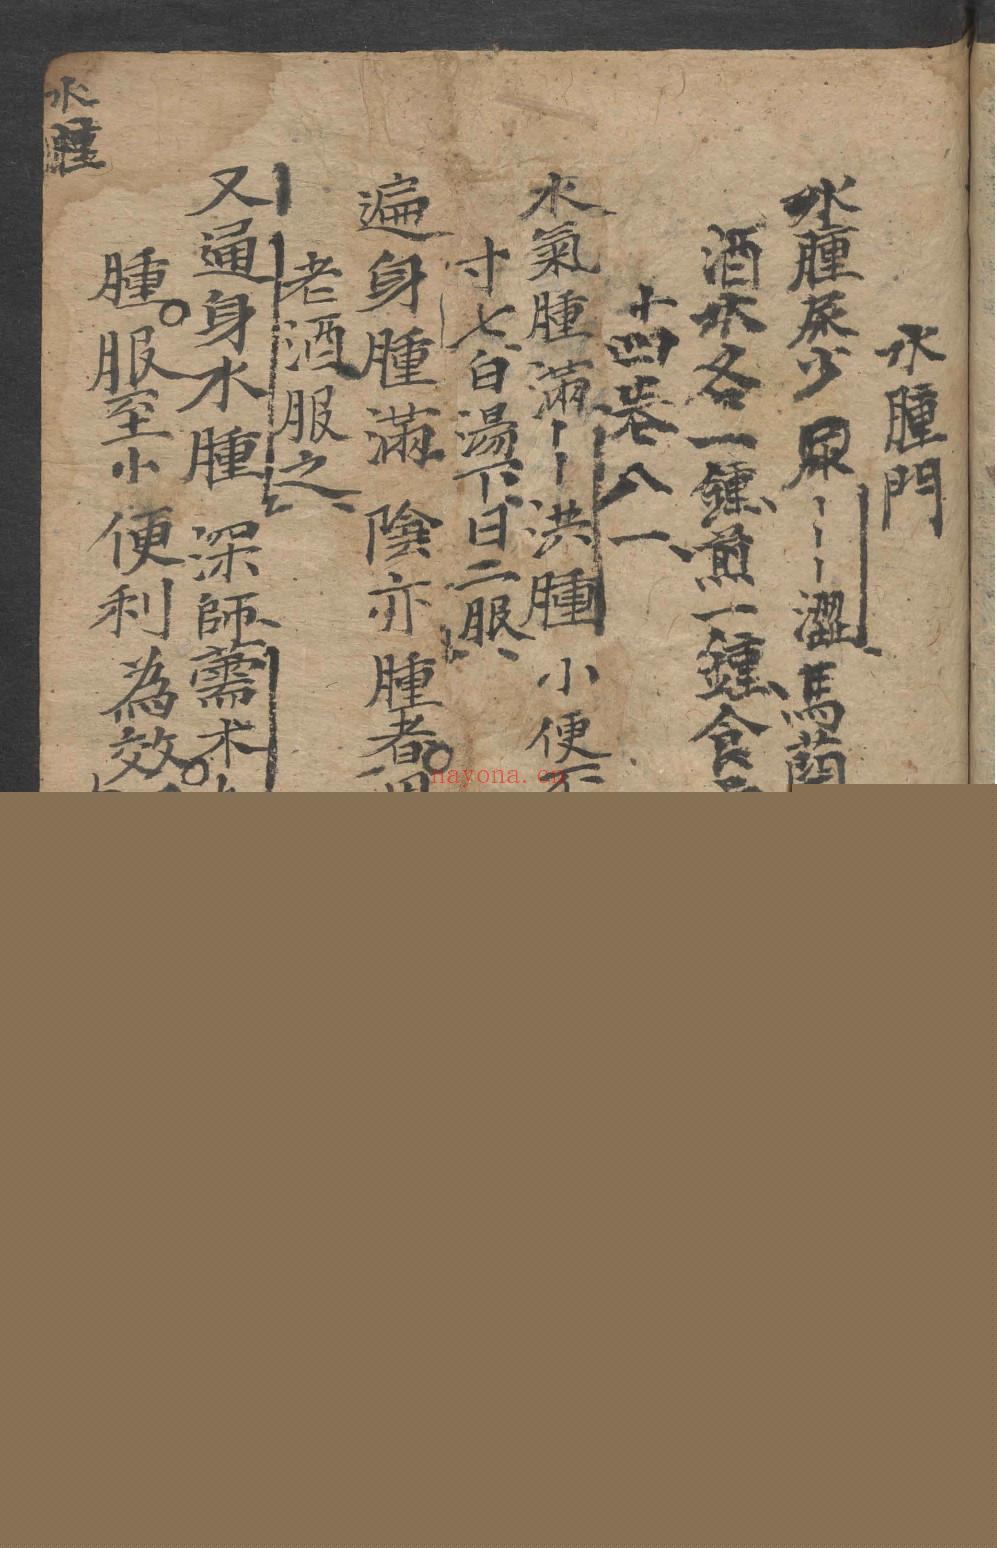 水腫門
水腫尿少 尿丨丨丨澀馬藺
酒水各一鍾煎一鍾食
十四卷 八一
水氣腫滿丨丨洪腫 小便不
寸七白湯下日二服
遍身腫滿 陰亦腫者○
老酒服之
又通身水腫 深師薷术
腫○服至小便利為效
水腫
nayona.cn